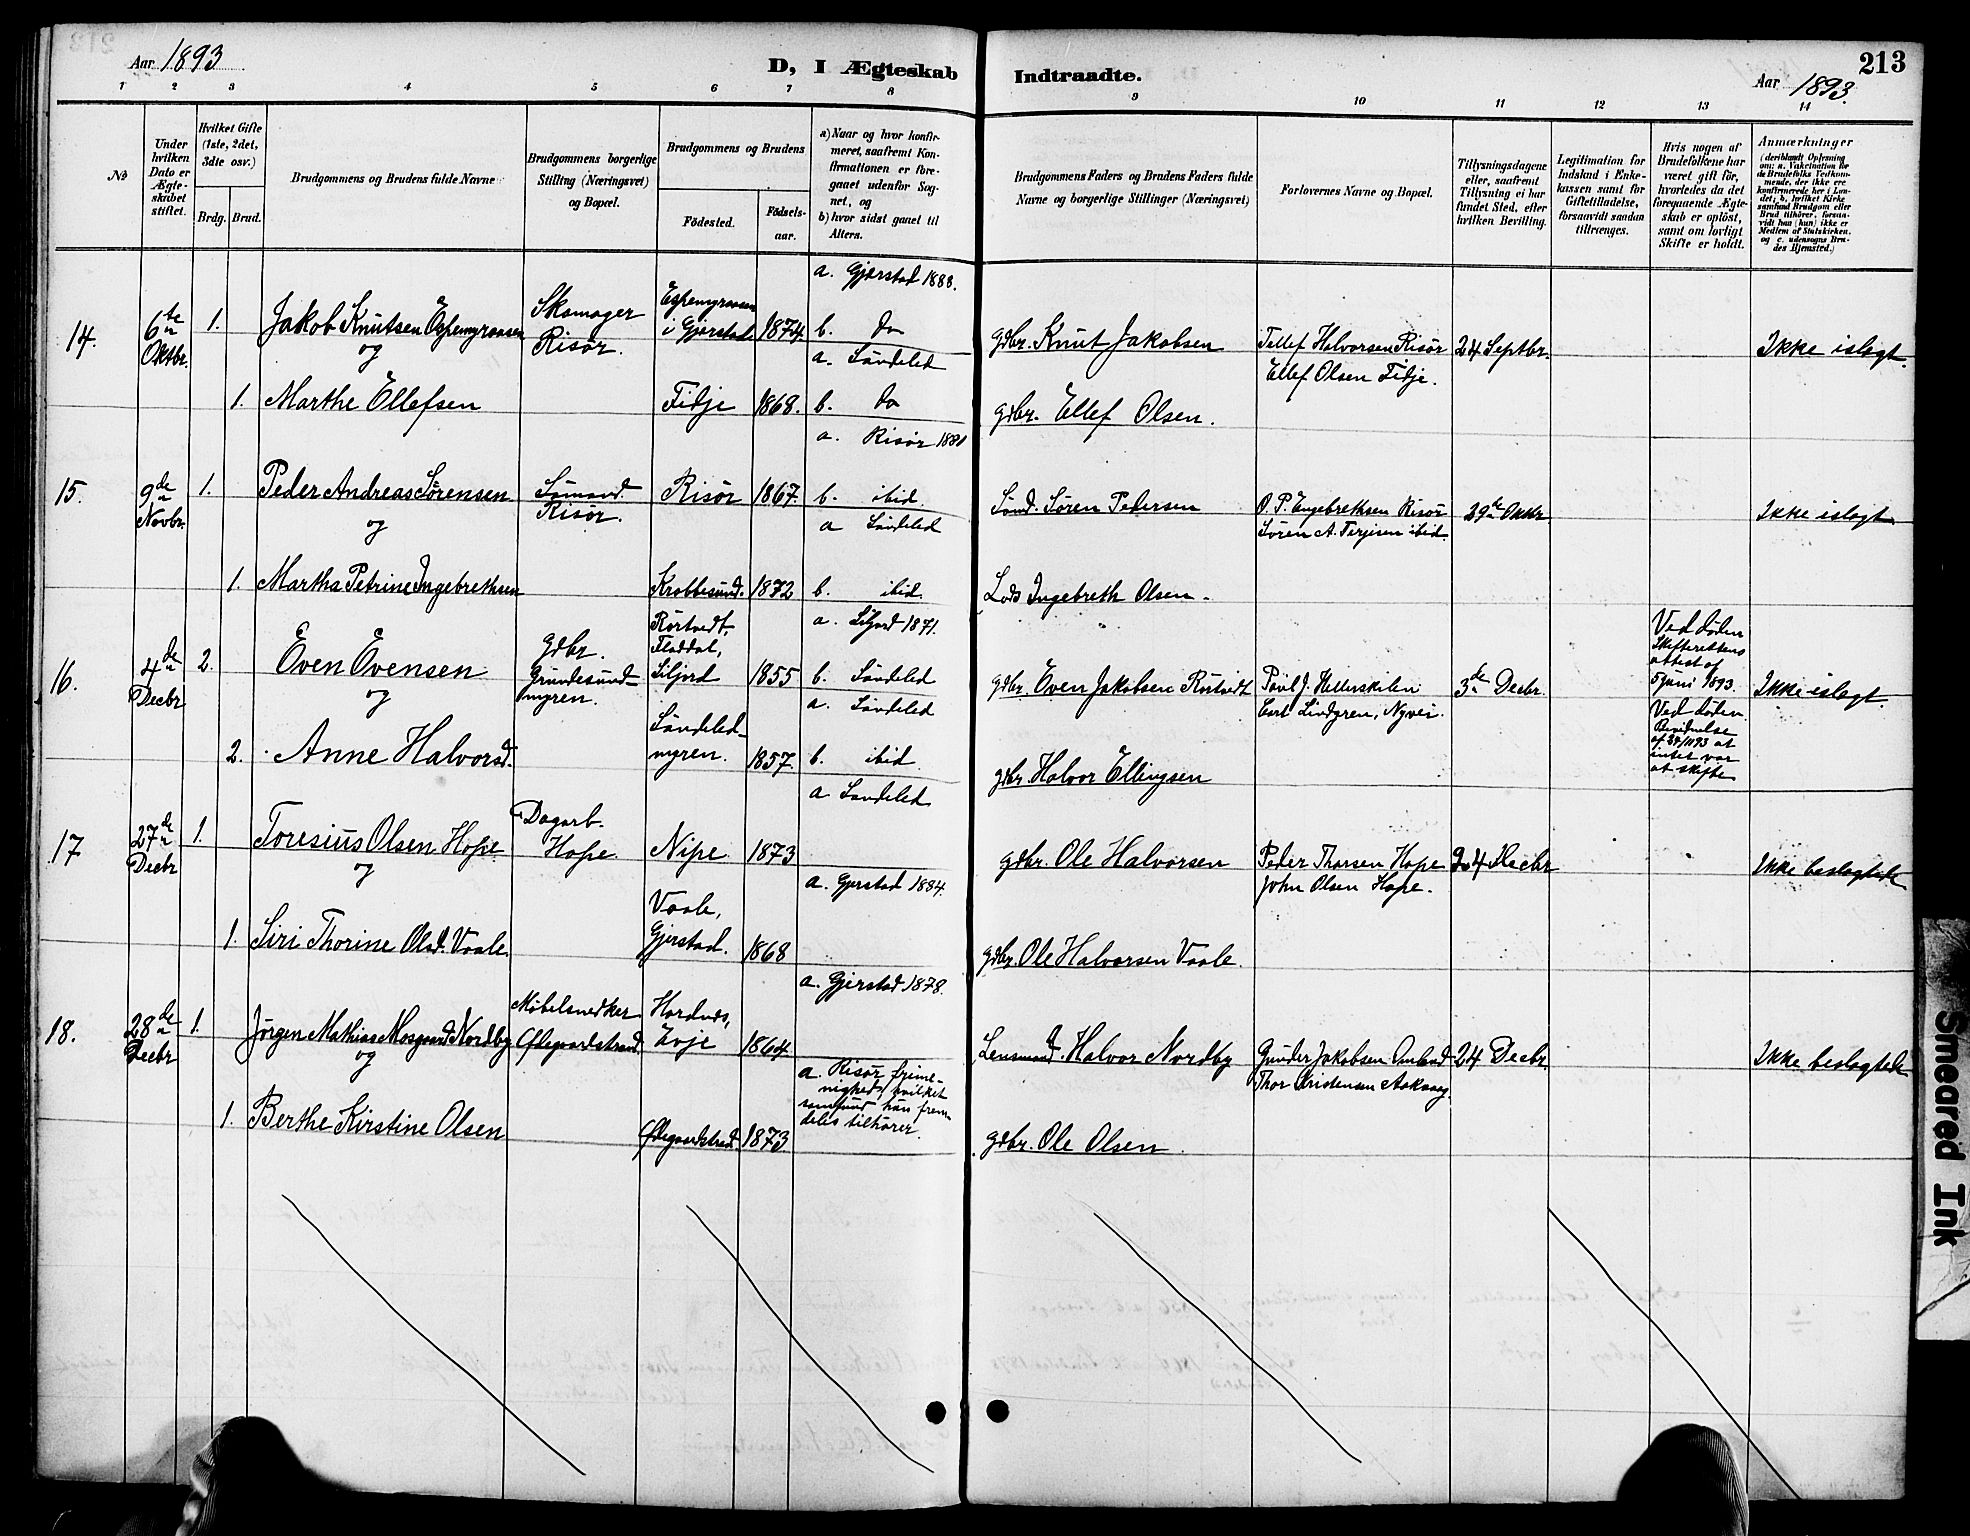 213
Aar 1893
D, I Ægteskab
Indtraadte.
Aar 1893.
1 2 3 4 5 6 7 8 9 10 11 12 13 14
No
Under hvilken Dato er Ægteskabet stiftet.
Hvilket Gifte (1ste, 2det, 3die osv.)
Brdg. Brud.
Brudgommens og Brudens fulde Navne
Brudgommens borgerlige Stilling (Næringsvei) og Bopæl.
Brudgommens og Brudens
Fødested.
Fødselsaar.
a) Naar og hvor konfirmeret, saafremt Konfirmationen er foregaaet udenfor Sognet, og
b) hvor sidst gaaet til Alters.
Brudgommens Faders og Brudens Faders fulde Navne og borgerlige Stillinger (Næringsvei)
Forlovernes Navne og Bopæl.
Tillysningsdagene eller, saafremt Tillysning ei har fundet Sted, efter hvilken Bevilling.
Legitimation for Indskud i Enkekassen samt for Giftetilladelse, forsaavidt saadan tiltrænges.
Hvis nogen af Brudefolkene har været gift før, hvorledes da det foregaaende Ægteskab er opløst, samt om lovligt Skifte er holdt.
Anmærkninger
(deriblandt Oplysning om: a. Vakcination for de Brudefolks Vedkommende, der ikke ere konfirmerede her i Landet; b. hvilket Kirkesamfund Brudgom eller Brud tilhører, forsaavidt han (hun) ikke er Medlem af Statskirken, og c. udensogns Brudes Hjemsted.)
14. 6te Oktbr. 1. Jakob Knutsen Espemyraasen Skomager Risør. Espemyraasen i Gjerstad 1874. a. Gjerstad 1888. b. do gdbr. Knut Jakobsen Tellef Halvorsen Risør Ellef Olsen Fidje. 24 Septbr. Ikke islegt.
og
1. Marthe Ellefsen Fidje 1868. a. Søndeled b. do gdbr. Ellef Olsen.
15. 9de Novbr. 1. Peder Andreas Sørensen Sømand Risør. Risør 1867. a. Risør 1881 b. ibid. Sømd. Søren Pedersen O. P. Engebrethsen Risør Søren A. Terjesen ibid. 29de Oktbr Ikke islegt
og
1. Martha Petrine Ingebrethsen Krabbesund. 1872 a Søndeled b. ibid. Lods Ingebreth Olsen.
16. 4de Decbr 2. Even Evensen gdbr. Grundesundmyren. Rørtvedt, Fladdal, Siljord 1855 a. Siljord 1871. b. Søndeled gdbr Even Jakobsen Rørtvedt Povl J. Hellerskilen Carl Lindgren, Nyvei. 3de Decbr. Ved døden Skifterettens attest af 5 juni 1893. Ikke islegt.
og
2. Anne Halvorsd. Søndeledmyren. 1857. a. Søndeled b. ibid. gdbr Halvor Ellingsen Ved døden. Bevidnelse af 24/11 93 at intet var at skifte
17 27de Decbr 1. Toresius Olsen Hope Dagarb. Hope. Nipe 1873 a Søndeled gdbr. Ole Halvorsen Peder Thorsen Hope John Olsen Hope. 24 Decbr Ikke beslegtede
og
1. Siri Thorine Olsd. Vaale. Vaale, Gjerstad. 1868 a. Gjerstad 1884. gdbr. Ole Halvorsen Vaale.
18. 28de Decbr 1. Jørgen Mathias Nordby Møbelsnedker Ødegaardstrand. Evje 1864 a. Gjerstad 1878. Lensmand. Halvor Nordby Gunder Jakobsen Thor Kristensen 24 Decbr Ikke beslegtede
og
1. Berthe Kirstine Olsen Ødegaardstrand. 1873. a. Risør frimenighed, hvilket samfund hun fremdeles tilhører. gdbr. Ole Olsen.
Smeared Ink